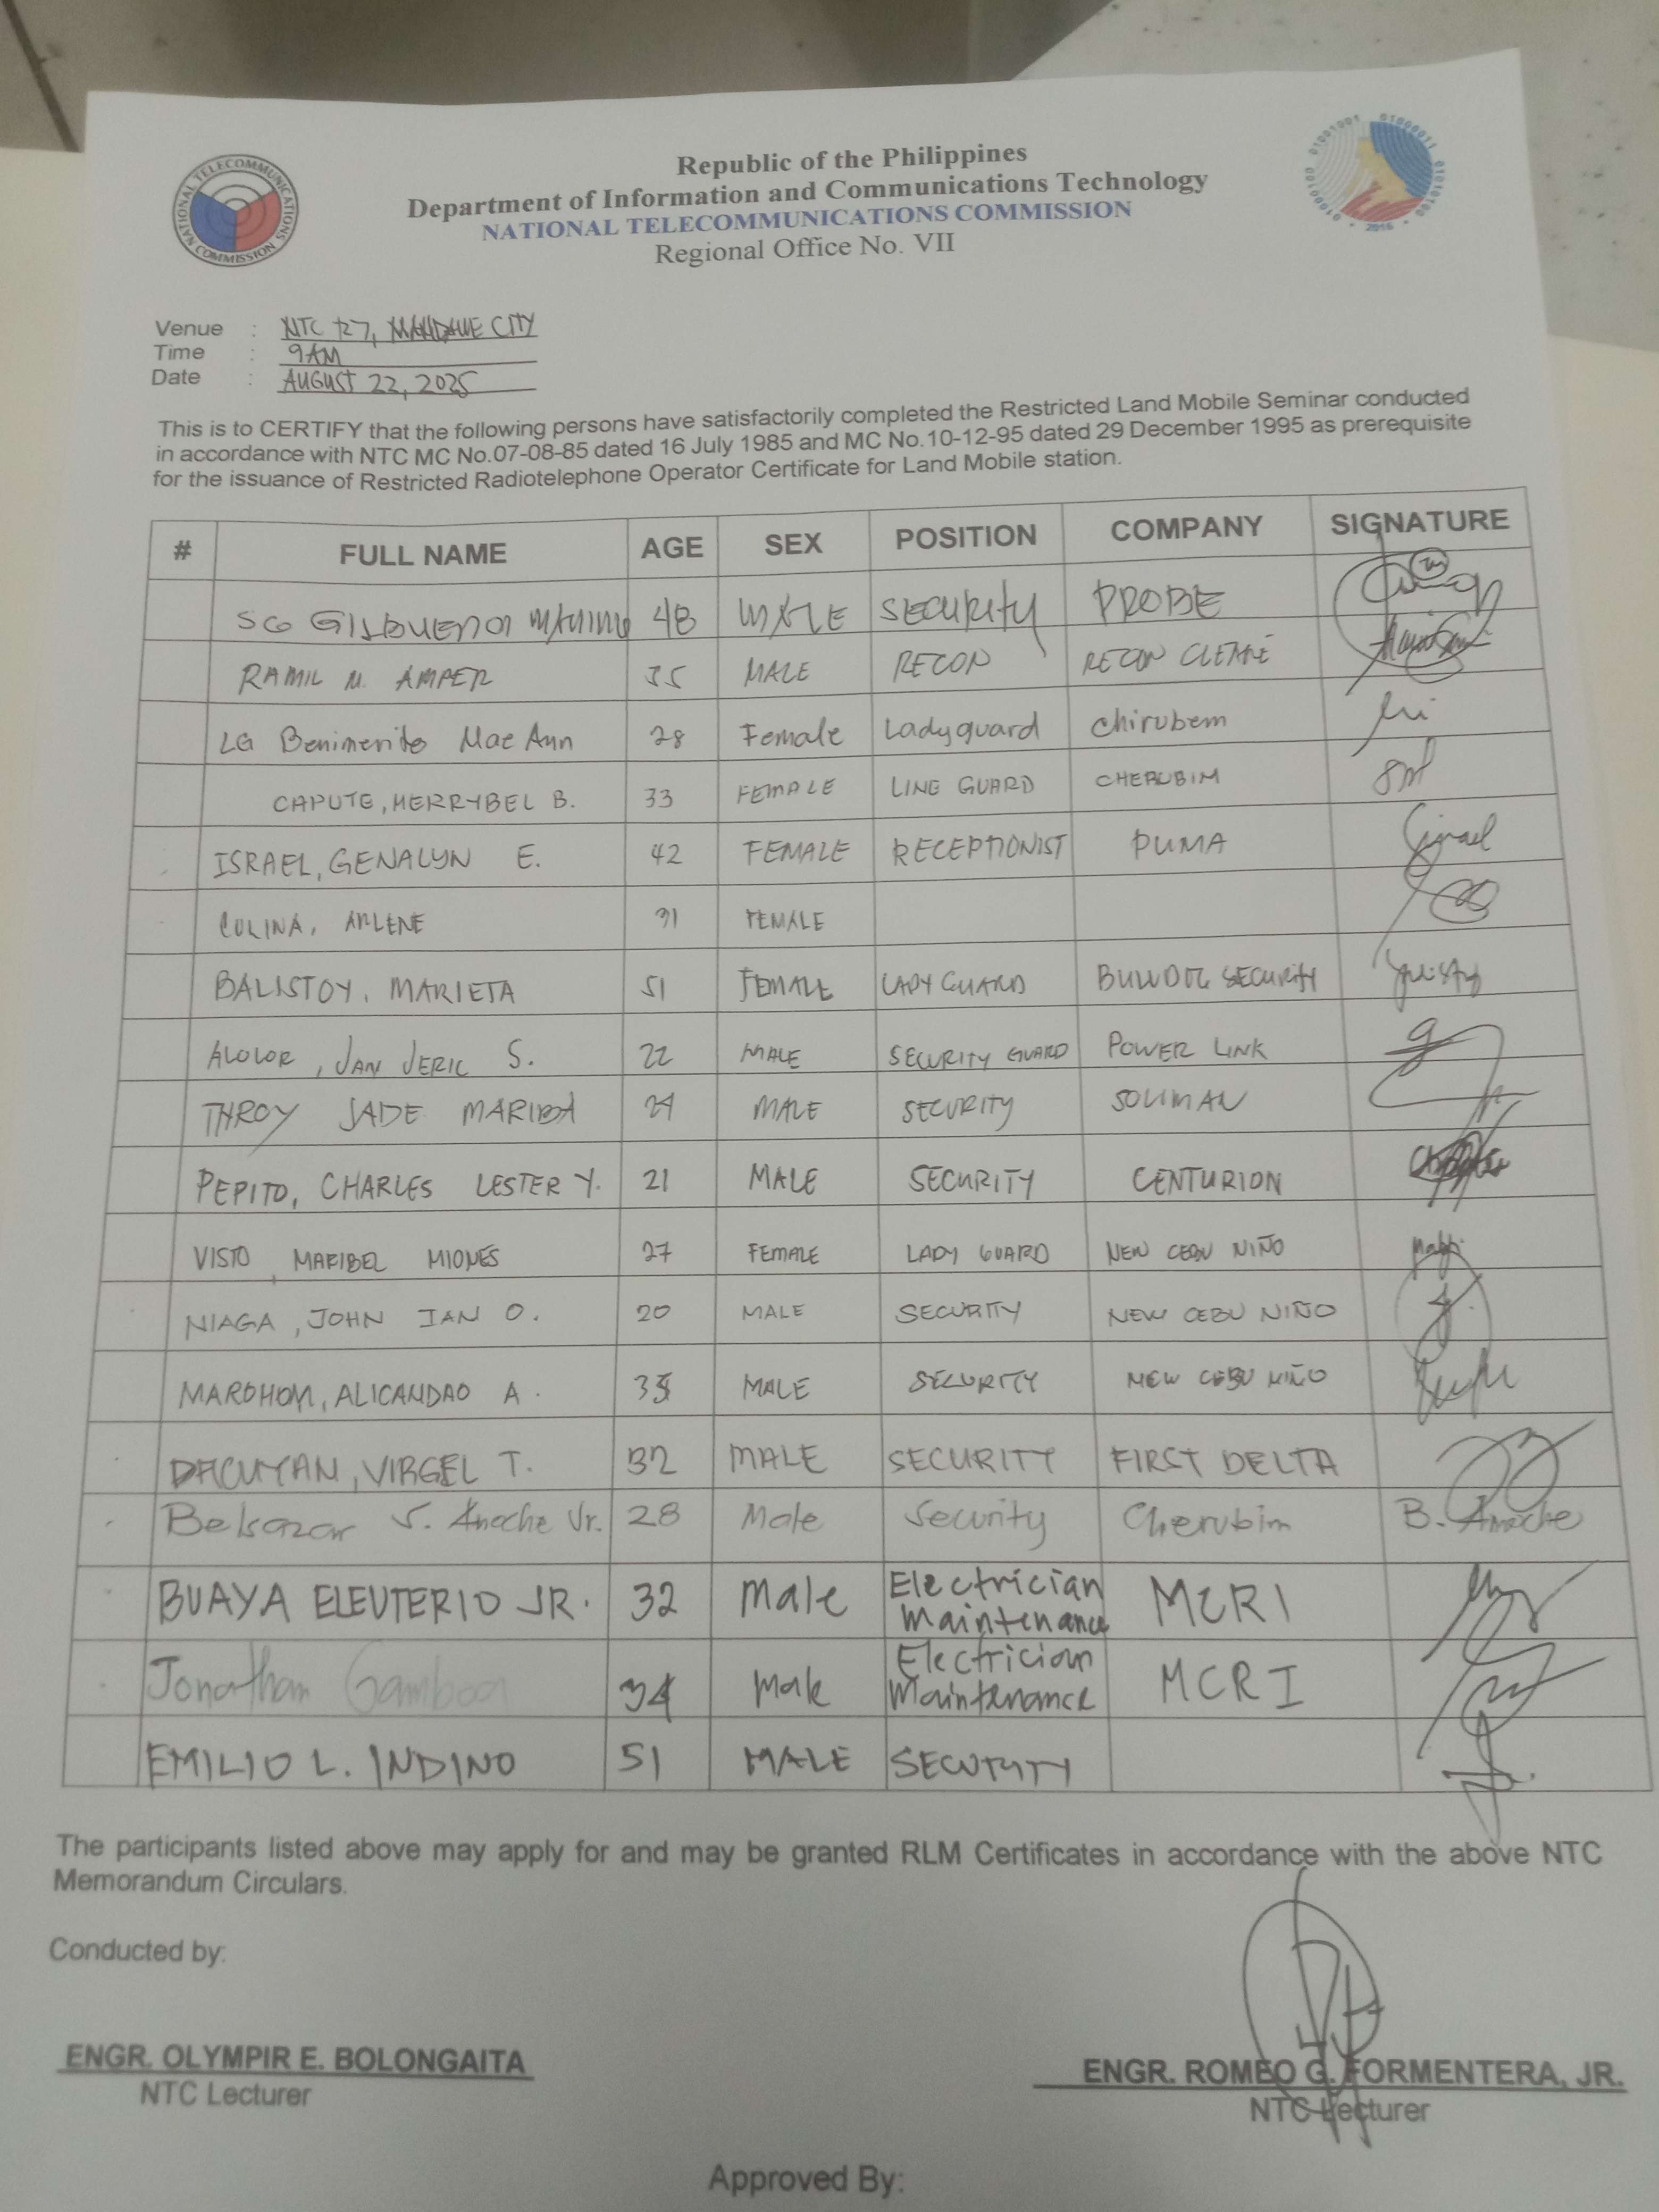 Republic of the Philippines
Department of Information and Communications Technology
NATIONAL TELECOMMUNICATIONS COMMISSION
Regional Office No. VII
NATIONAL TELECOMMUNICATIONS COMMISSION
2016
Venue : NTC R7, MANDAUE CITY
Time : 9AM
Date : AUGUST 22, 2025
This is to CERTIFY that the following persons have satisfactorily completed the Restricted Land Mobile Seminar conducted
in accordance with NTC MC No.07-08-85 dated 16 July 1985 and MC No.10-12-95 dated 29 December 1995 as prerequisite
for the issuance of Restricted Radiotelephone Operator Certificate for Land Mobile station.
# FULL NAME AGE SEX POSITION COMPANY SIGNATURE
SG 48 MALE SECURITY PROBE
RAMIL M. AMPER 35 MALE RECON RECON
LG Benimerito Mae Ann 28 Female Ladyguard chirubem
CAPUTE, HERRYBEL B. 33 FEMALE LINE GUARD CHERUBIM
ISRAEL, GENALYN E. 42 FEMALE RECEPTIONIST PUMA
COLINA, ARLENE 31 FEMALE
BALISTOY, MARIETA 51 FEMALE LADY GUARD SECURITY
ALOLOR, JAN JERIC S. 22 MALE SECURITY GUARD POWER LINK
THROY JADE 29 MALE SECURITY SOLIMAN
PEPITO, CHARLES LESTER Y. 21 MALE SECURITY CENTURION
VISTO, MARIBEL MIONES 27 FEMALE LADY GUARD NEW CEBU NIÑO
NIAGA, JOHN IAN O. 20 MALE SECURITY NEW CEBU NIÑO
MAROHOM, ALICANDAO A. MALE SECURITY NEW CEBU NIÑO
DACUYAN, VIRGEL T. 32 MALE SECURITY FIRST DELTA
Belsazar S. Anoche Jr. 28 Male Security Cherubim B. Anoche
BUAYA ELEUTERIO JR. 32 Male Electrician Maintenance MCRI
Jonathan Gamboa 34 Male Electrician Maintenance MCRI
EMILIO L. INDINO 51 MALE SECURITY
The participants listed above may apply for and may be granted RLM Certificates in accordance with the above NTC
Memorandum Circulars.
Conducted by:
ENGR. OLYMPIR E. BOLONGAITA ENGR. ROMEO G. FORMENTERA, JR.
NTC Lecturer NTC Lecturer
Approved By: